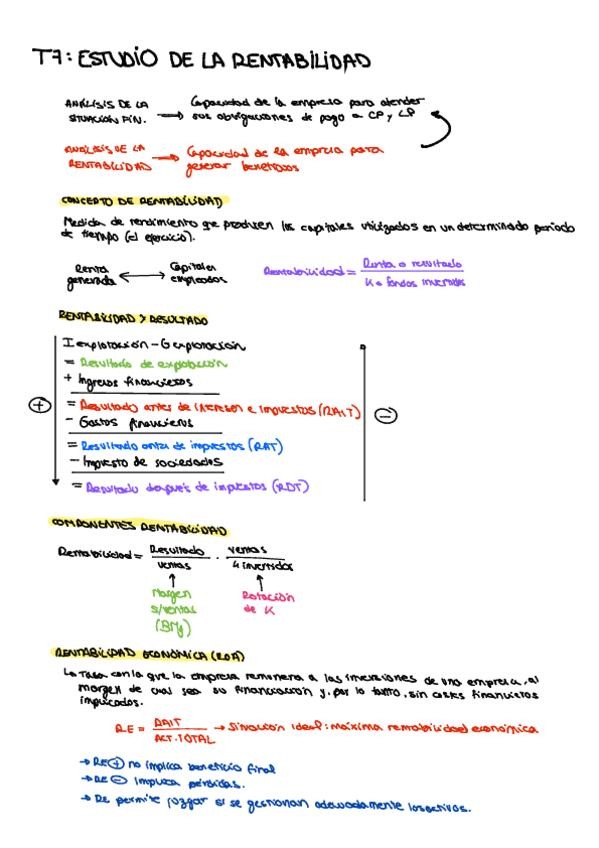 T7: ESTUDIO DE LA RENTABILIDAD
ANÁLISIS DE LA SITUACIÓN FIN. → Capacidad de la empresa para atender
sus obligaciones de pago a CP y LP
ANÁLISIS DE LA RENTABILIDAD → Capacidad de la empresa para
generar beneficios
CONCEPTO DE RENTABILIDAD
Medida de rendimiento que producen los capitales utilizados en un determinado periodo
de tiempo (el ejercicio).
Renta generada ↔ Capitales empleados
Rentabilidad = Renta o resultado / K o fondos invertidos
RENTABILIDAD Y RESULTADO
I explotación - G explotación
= Resultado de explotación
+ Ingresos financieros
+ = Resultado antes de intereses e impuestos (RAIT) -
- Gastos financieros
= Resultado antes de impuestos (RAT)
- Impuesto de sociedades
= Resultado después de impuestos (RDT)
COMPONENTES RENTABILIDAD
Rentabilidad = Resultado / ventas · ventas / K invertidos
Margen s/ventas (BMg)
Rotación de K
RENTABILIDAD ECONÓMICA (ROA)
↳ Tasa con la que la empresa remunera a las inversiones de una empresa, al
margen de cual sea su financiación y, por lo tanto, sin costes financieros
implicados.
RE = RAIT / ACT. TOTAL → Situación ideal: máxima rentabilidad económica
→ RE + no implica beneficio final
→ RE - implica pérdidas.
→ RE permite juzgar si se gestionan adecuadamente los activos.